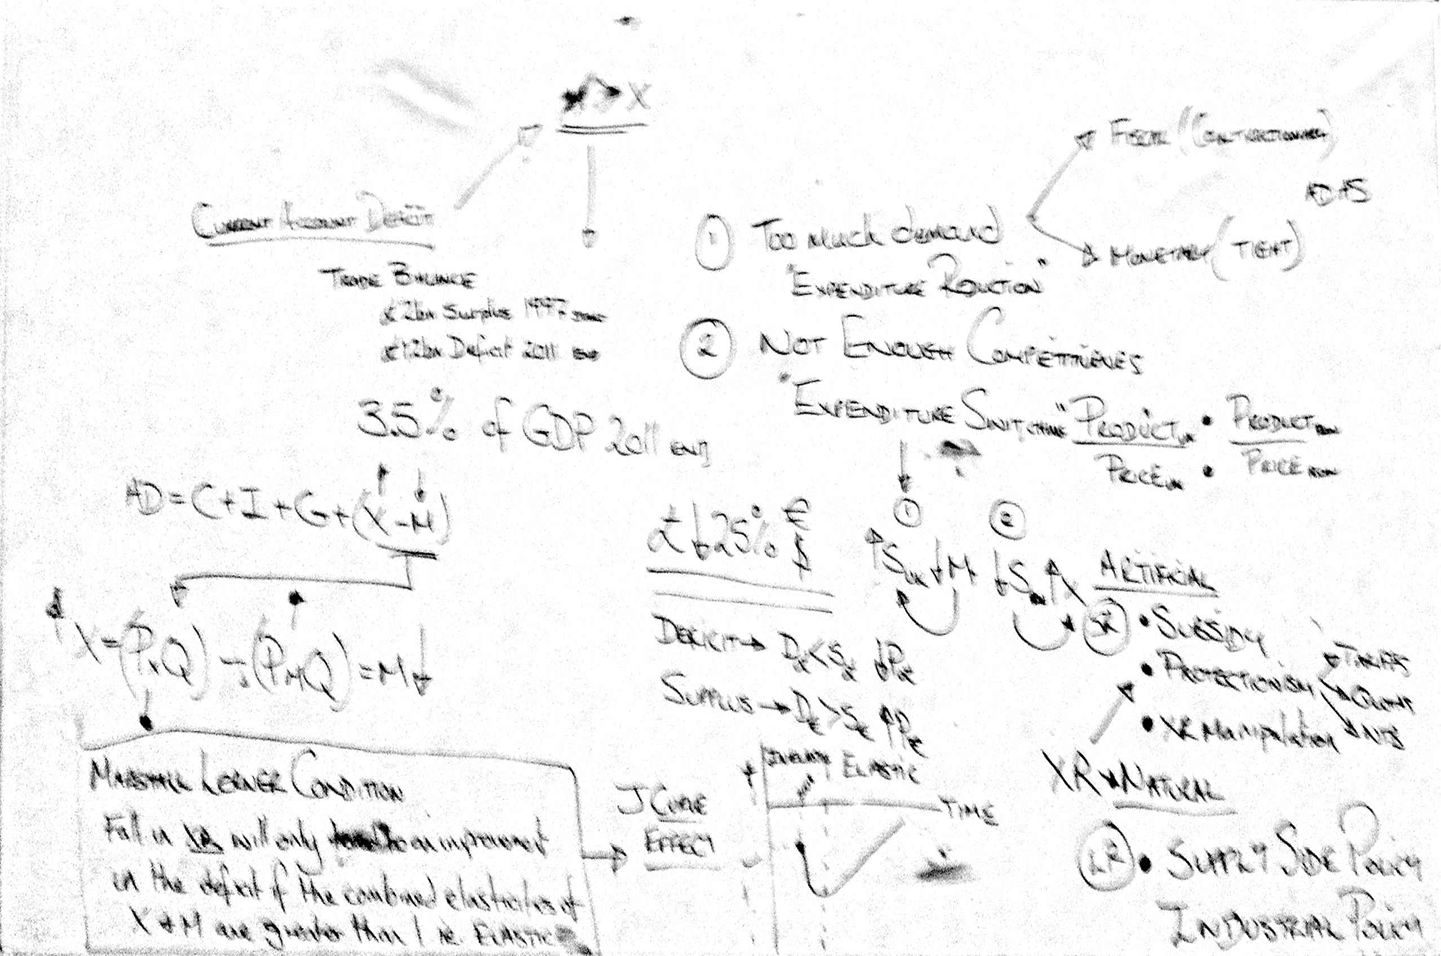 M > X
CURRENT ACCOUNT DEFICIT
TRADE BALANCE
£2bn Surplus 1997
Deficit 2011 END
3.5% of GDP 2011 END
AD = C + I + G + (X - M)
X = (PxQ) - (PMQ) = M↓
MARSHALL LERNER CONDITION
Fall in XR will only to an improvement
in the deficit if the combined elasticities of
X + M are greater than 1 ie. ELASTIC
① Too much demand
"EXPENDITURE REDUCTION"
FISCAL (CONTRACTIONARY)
AD AS
MONETARY (TIGHT)
② NOT ENOUGH COMPETITIVENES
"EXPENDITURE SWITCHING"
PRODUCT UK • PRODUCT ROW
PRICE UK • PRICE ROW
£↓25% € $
① ②
↑SUK ↓M ↓S ↑X
DEFICIT → D£ < S£ ↓P£
SURPLUS → D£ > S£ ↑P£
J CURVE
EFFECT
ELASTIC
TIME
ARTIFICIAL
SR • SUBSIDY
• PROTECTIONISM
TARIFFS
QUOTAS
NTB
• XR Manipulation
XR NATURAL
LR • SUPPLY SIDE POLICY
INDUSTRIAL POLICY